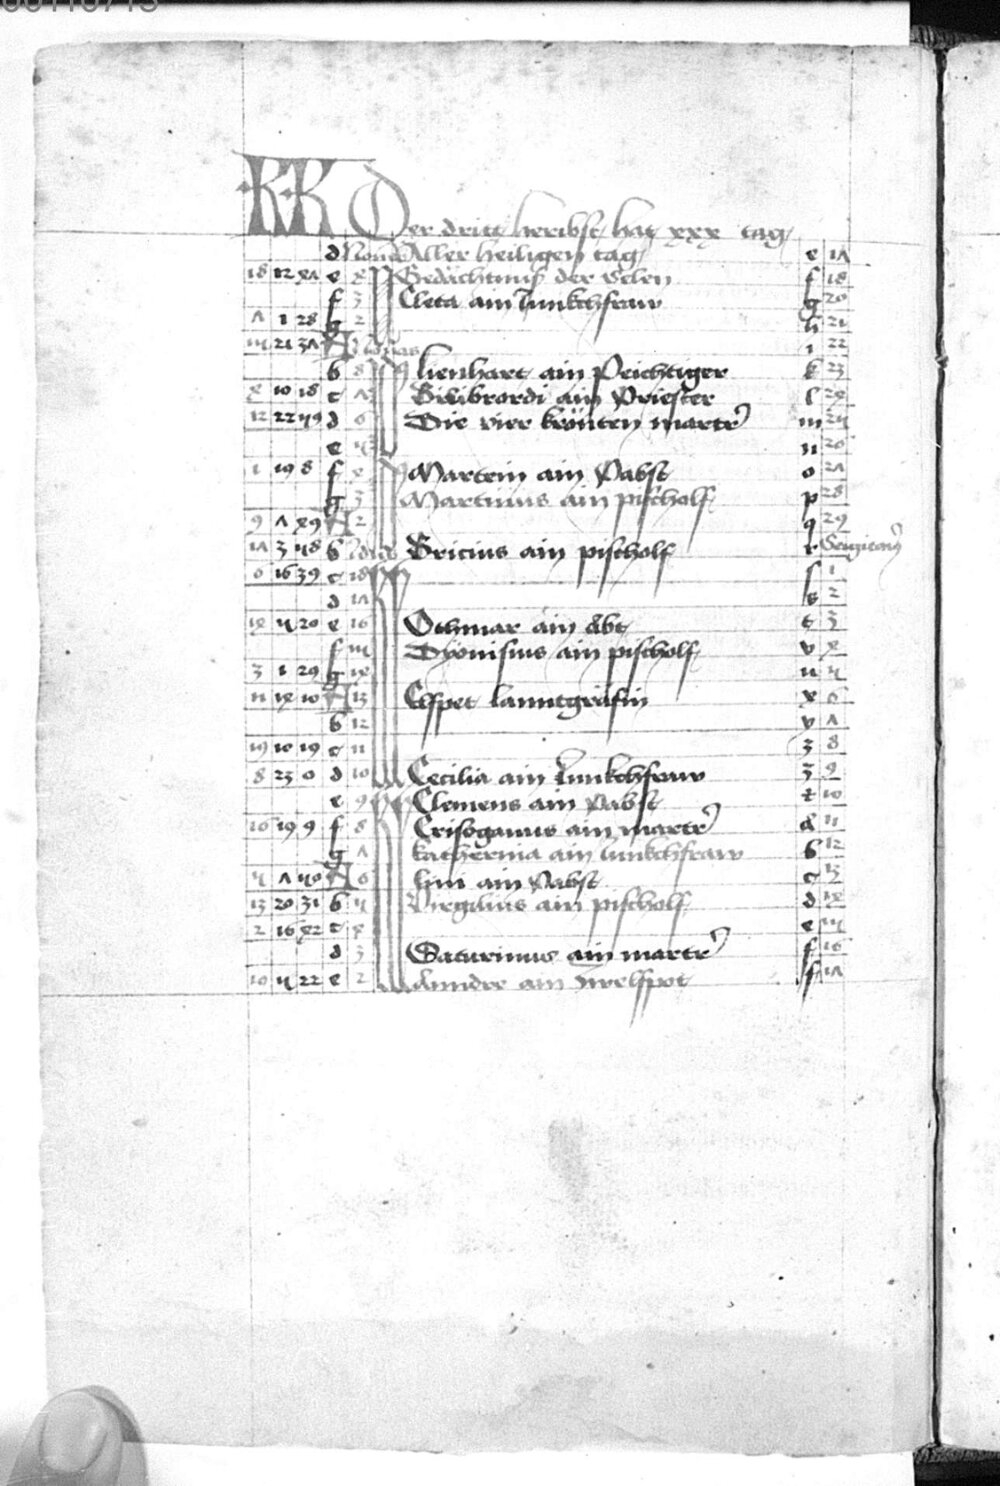 KL Der dritt heribst hat xxx tag
d Nouember Aller heiligen tag e 17
18 12 47 e 4 Gedächtnuß der Selen f 18
f 3 Cleta ain Junkchfraw g 20
7 1 28 g 2 h 21
15 21 37 A Nonas i 22
b 8 lienhart ain Peichtiger k 23
4 10 18 c 7 Bilibrordi ain Priester l 24
12 22 59 d 6 Die vier krönten martrer m 25
e 5 n 26
1 19 8 f 4 Martein ain Pabst o 27
g 3 Martinus ain pischolf p 28
9 7 49 A 2 q 29
17 3 58 b Idus Bricius ain pischolf r
6 16 39 c 18 s 1
d 17 s 2
14 5 20 e 16 Othmar ain Abt t 3
f 15 Dyonisius ain pischolf v 4
3 1 29 g 14 u 5
11 14 10 A 13 Elspet lanntgräfin x 6
b 12 y 7
19 10 19 c 11 z 8
8 23 0 d 10 Cecilia ain Junkchfraw z 9
e 9 Clemens ain Pabst 10
16 19 9 f 8 Crisogonus ain martrer & 11
g 7 katherina ain Junkchfraw b 12
5 7 40 A 6 lini ain Pabst c 13
13 20 31 b 5 Virgilius ain pischolf d 14
2 16 42 c 4 e 15
d 3 Saturinus ain martrer f 16
10 5 22 e 2 Anndre ain zwelfpot f 17